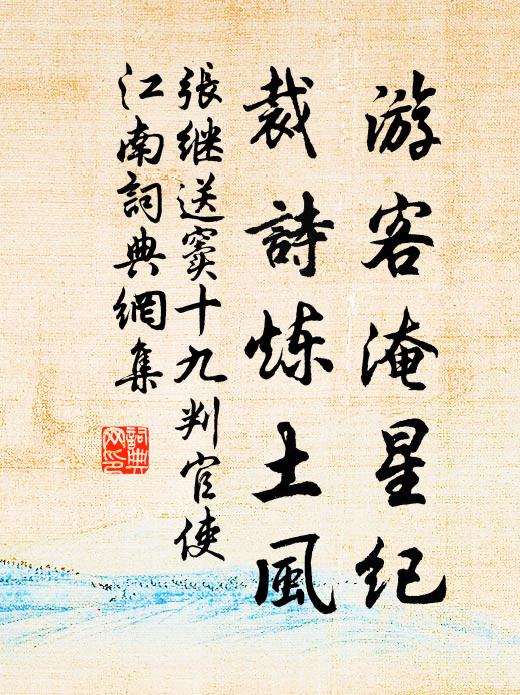 游客淹星纪
裁詩炼土風
張继送窦十九判官使
江南詞典網集
詞典